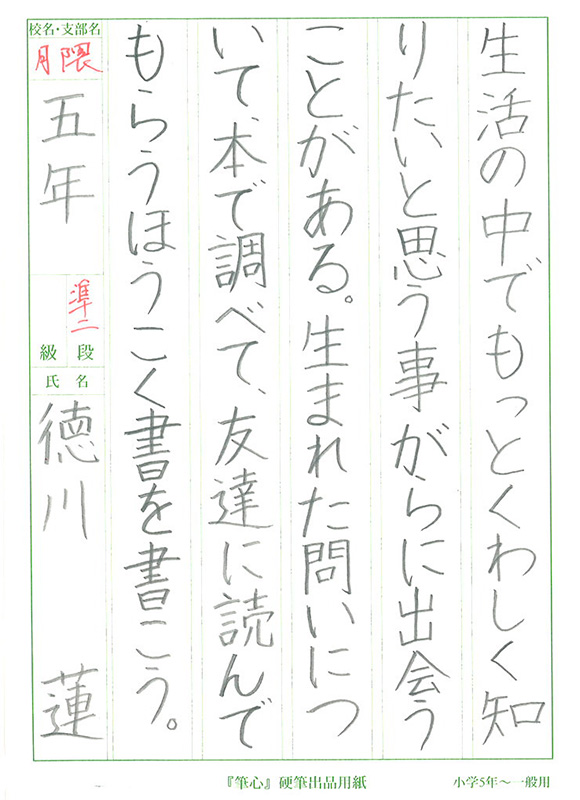 生活の中でもっとくわしく知
りたいと思う事がらに出会う
ことがある。生まれた問いにつ
いて、本で調べて、友達に読んで
もらうほうこく書を書こう。
校名・支部名
月隈
五年
準二
級 段
氏 名
徳川 蓮
『筆心』硬筆出品用紙
小学5年〜一般用